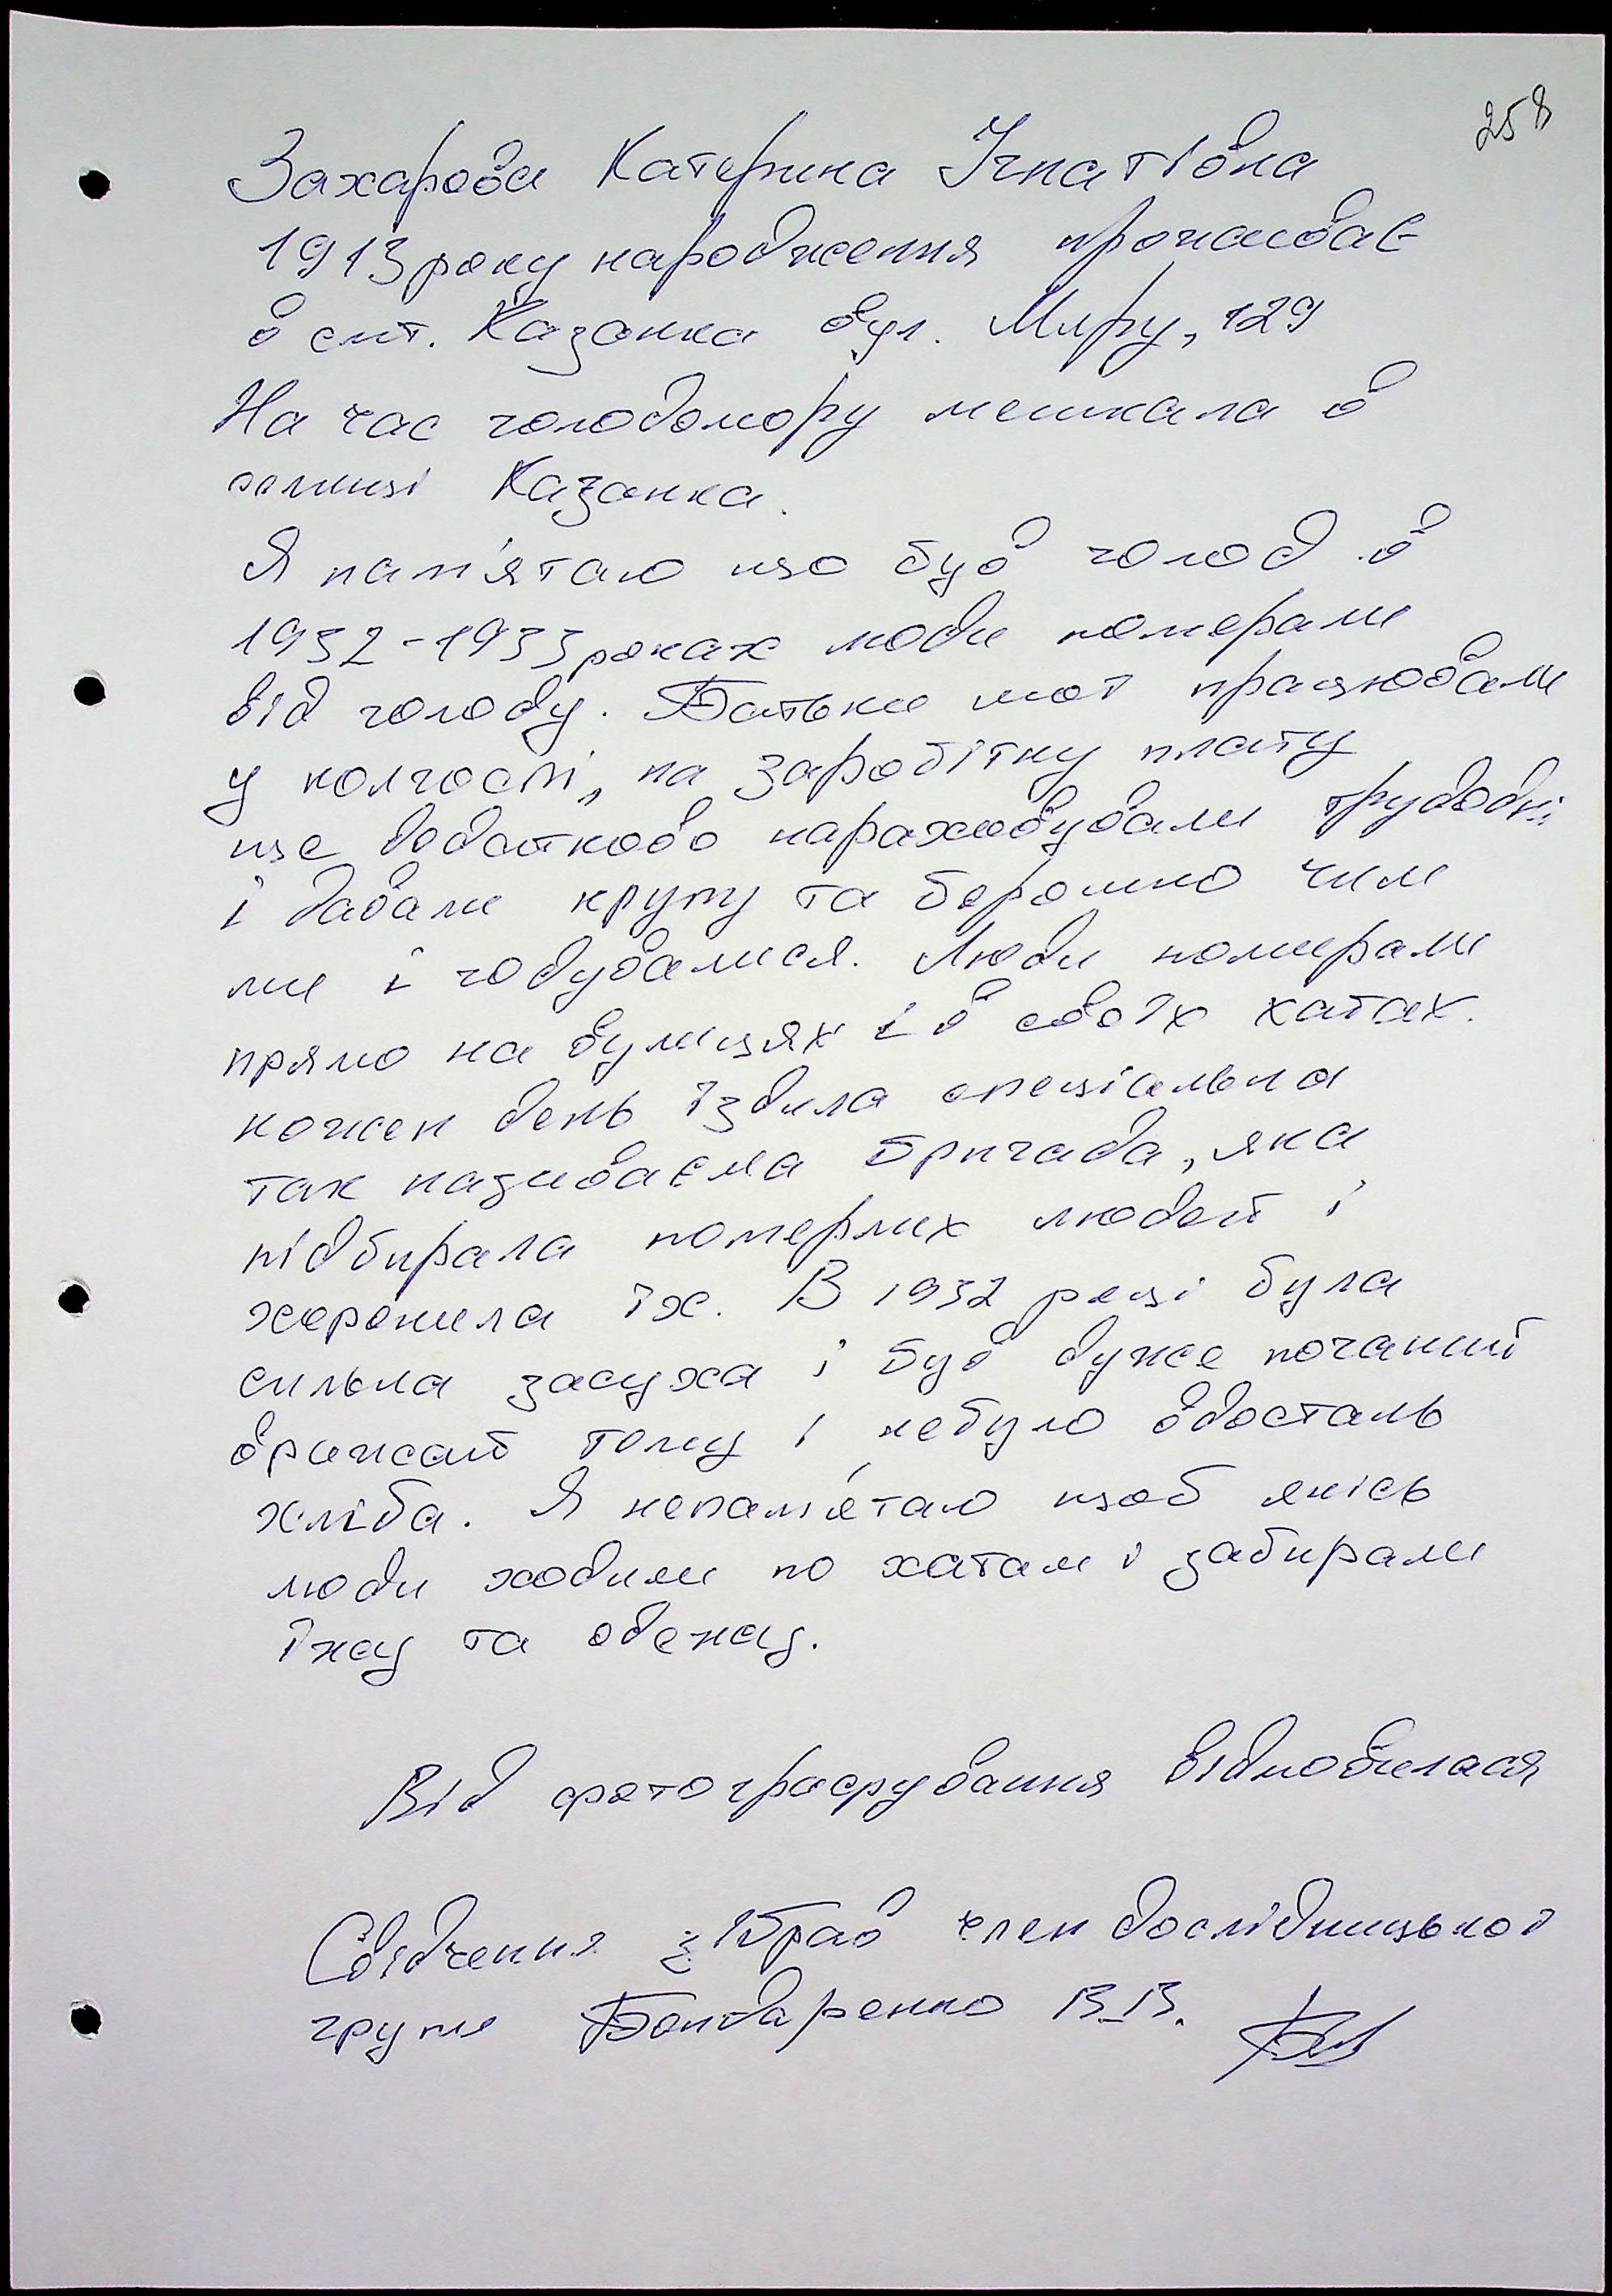 258
Захарова Катерина Ігнатівна
1913 року народження проживає
в смт. Казанка вул. Миру, 129
На час голодомору мешкала в
селищі Казанка.
Я пам'ятаю що був голод в
1932-1933 роках люди померали
від голоду. Батьки мої працювали
у колгоспі, на заробітну плату
ще додатково нараховували трудодні
і давали крупу та борошно чим
ми і годувалися. Люди помирали
прямо на вулицях і в своїх хатах.
кожен день їздила спеціальна
так називаєма бригада, яка
підбирала померлих людей і
хоронила їх. В 1932 році була
сильна засуха і був дуже поганий
врижай тому і небуло вдосталь
хліба. Я непам'ятаю щоб якісь
люди ходили по хатам і забирали
їжу та одежу.
Від фотографування відмовилася
Свідчення зібрав член дослідницької
групи Бондаренко В.В.